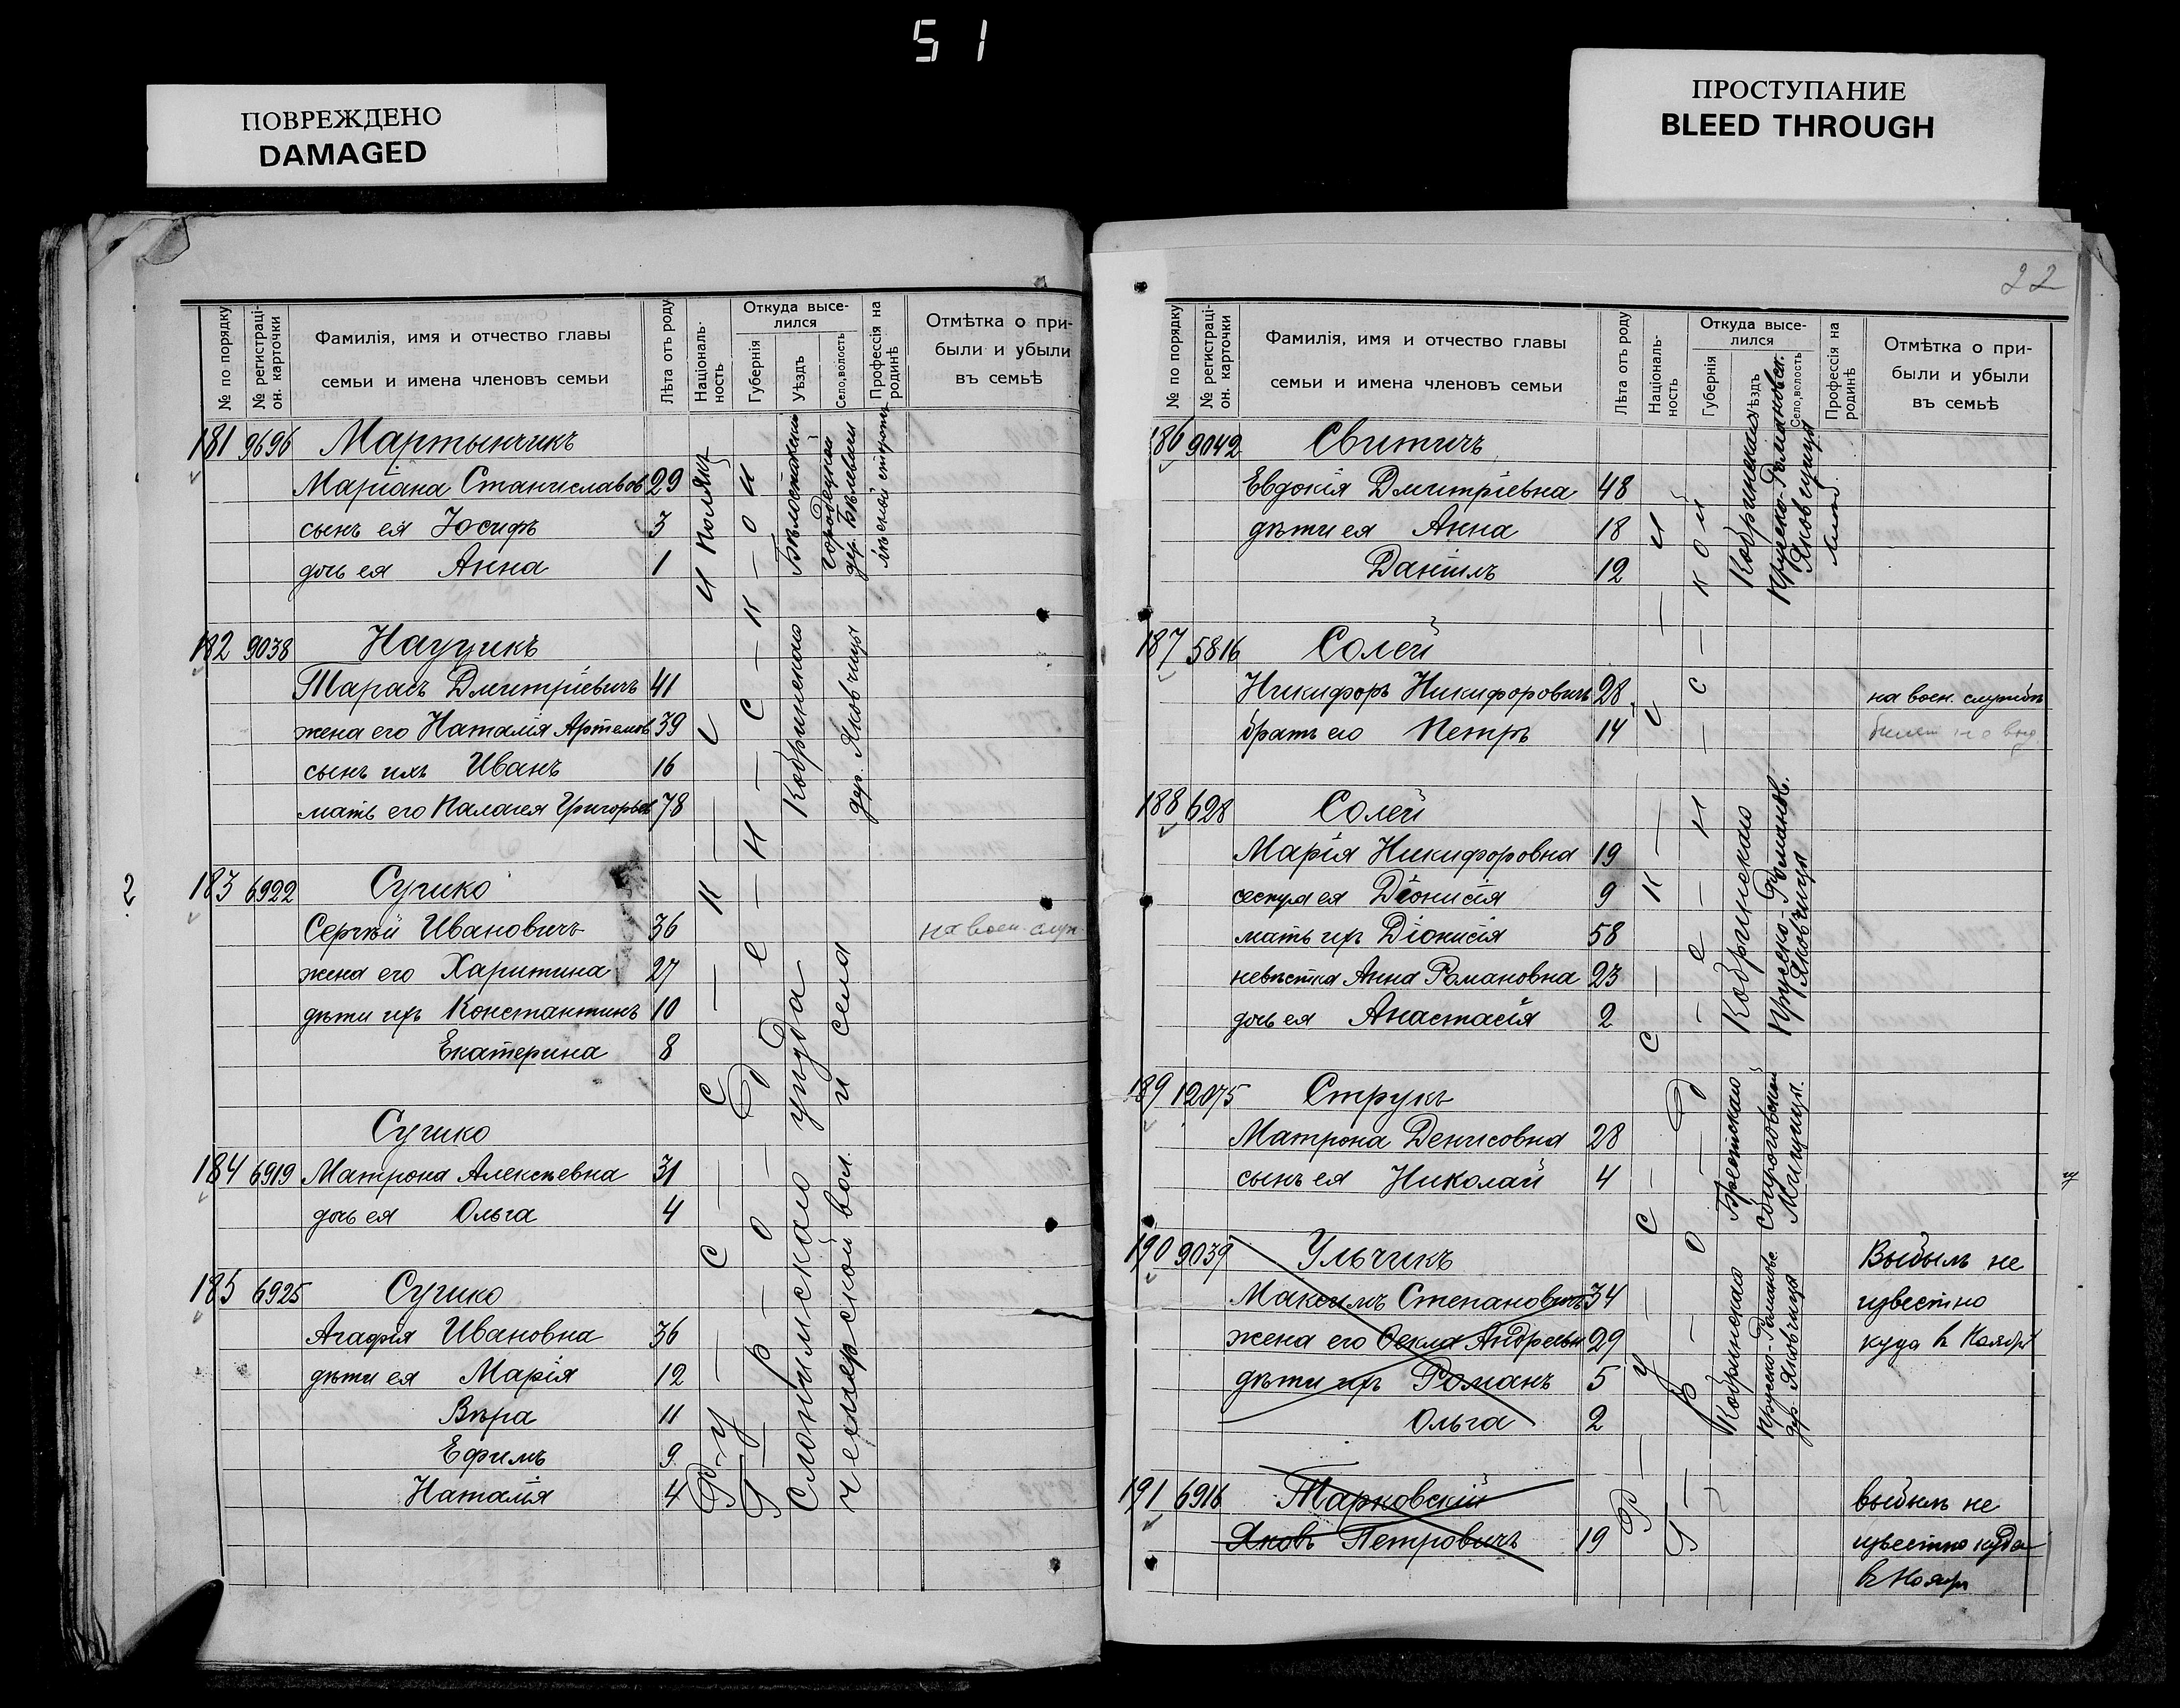 51
ПОВРЕЖДЕНО
DAMAGED
ПРОСТУПАНИЕ
BLEED THROUGH
№ по порядку
№ регистраці-
он. карточки
Фамилія, имя и отчество главы
семьи и имена членовъ семьи
Лѣта отъ роду
Національ-
ность
Откуда высе-
лился
Губернія
Уѣздъ
Село, волость
Профессія на
родинѣ
Отмѣтка о при-
были и убыли
въ семьѣ
181 9696 Мартынчикъ
Маріана Станиславов 29
сынъ ея Юсифъ 5
дочь ея Анна 1
поляки
Бѣлостокскій
Городецкой
дер.
182 9038 Науцикъ
Тарасъ Дмитріевичъ 41
жена его Наталія Артемов 39
сынъ ихъ Иванъ 16
мать его Палагея Григорьев 78
Кобринскаго
дер. Яковчицы
2
183 6922 Сучико
Сергѣй Ивановичъ 36 на воен. служ.
жена его Харитина 27
дѣти ихъ Константинъ 10
Екатерина 8
Сучико
184 6919 Матрона Алексѣевна 31
дочь ея Ольга 4
185 6925 Сучико
Агафія Ивановна 36
дѣти ея Марія 12
Вѣра 11
Ефимъ 9
Наталія 4
Р-у-с-с-к-и
Г-р-о-д-н-е-н-с-к-о-й
Слонимскаго уѣзда
чемерской вол. и села
22
№ по порядку
№ регистраці-
он. карточки
Фамилія, имя и отчество главы
семьи и имена членовъ семьи
Лѣта отъ роду
Національ-
ность
Откуда высе-
лился
Губернія
Уѣздъ
Село, волость
Профессія на
родинѣ
Отмѣтка о при-
были и убыли
въ семьѣ
186 9042 Свитичъ
Евдокія Дмитріевна 48
дѣти ея Анна 18
Даніилъ 12
Кобринскаго
Прусско-Романовск.
Яковчицы
187 5816 Солей
Никифоръ Никифоровичъ 28 на воен. службѣ
братъ его Петръ 14 билет не выд.
188 628 Солей
Марія Никифоровна 19
сестра ея Діонисія 9
мать ихъ Діонисія 58
невѣстка Анна Романовна 23
дочь ея Анастасія 2
Кобринскаго
Прусско-Романов.
Яковчицы
189 12075 Струкъ
Матрона Денисовна 28
сынъ ея Николай 4
Брестскаго
190 9039 Ульчикъ Выбылъ не
Максимъ Степановичъ 34 извѣстно
жена его Ѳекла Андреевн 29 куда в Ноябрѣ
дѣти ихъ Романъ 5
Ольга 2
Кобринскаго
Прусско-Романовс
дер. Яковчицы
191 6916 Тарковскій выбылъ не
Яковъ Петровичъ 19 извѣстно куда
в Ноябр
Р-у-с-с-к-и
Г-р-о-д-н-е-н-с-к-о-й